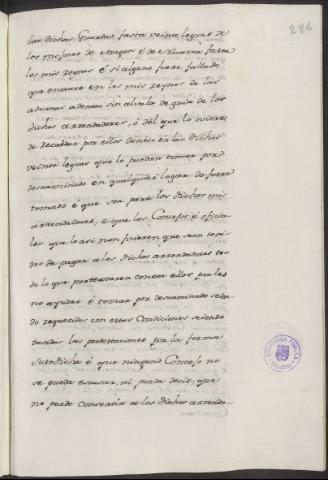 las dichas Guardas fasta veinte leguas de
los mojones de Aragon é de Navarra fasta
los mis reynos é si alguno fuere fallado
que entrare en los mis reynos de las
aduanas adentro sin alvala de guia de los
dichos arrendadores, ó del que lo oviere
de recaudar por ellos dentro en las dichas
veinte leguas que lo puedan tomar por
descaminado en qualquier logar do fuere
tomado é que sea para los dichos mis
arrendadores, é que los Concejos é oficia
les que lo asi non ficieren que sean teni
dos de pagar a los dichos arrendadores to
do lo que protestaren contra ellos por les
no ayudar é tomar por descaminado seien
do requeridos con estas Condiciones seiendo
tomadas las protestaciones por la forma
susodicha é que ninguno Concejo no
se pueda escusar, ni pueda decir, que
no puede consentir a los dichos arrenda-
284
BIBLIOTECA PUBLICA